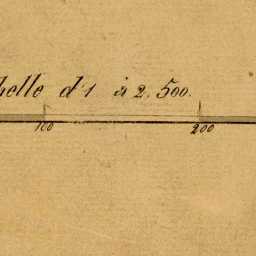 helle d'1 à 2.500.
100 200